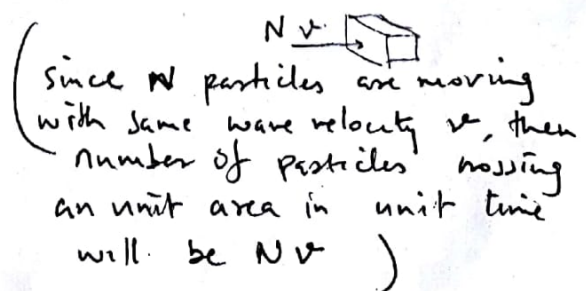 N v
(since N particles are moving
with same wave velocity v, then
number of particles crossing
an unit area in unit time
will be N v)